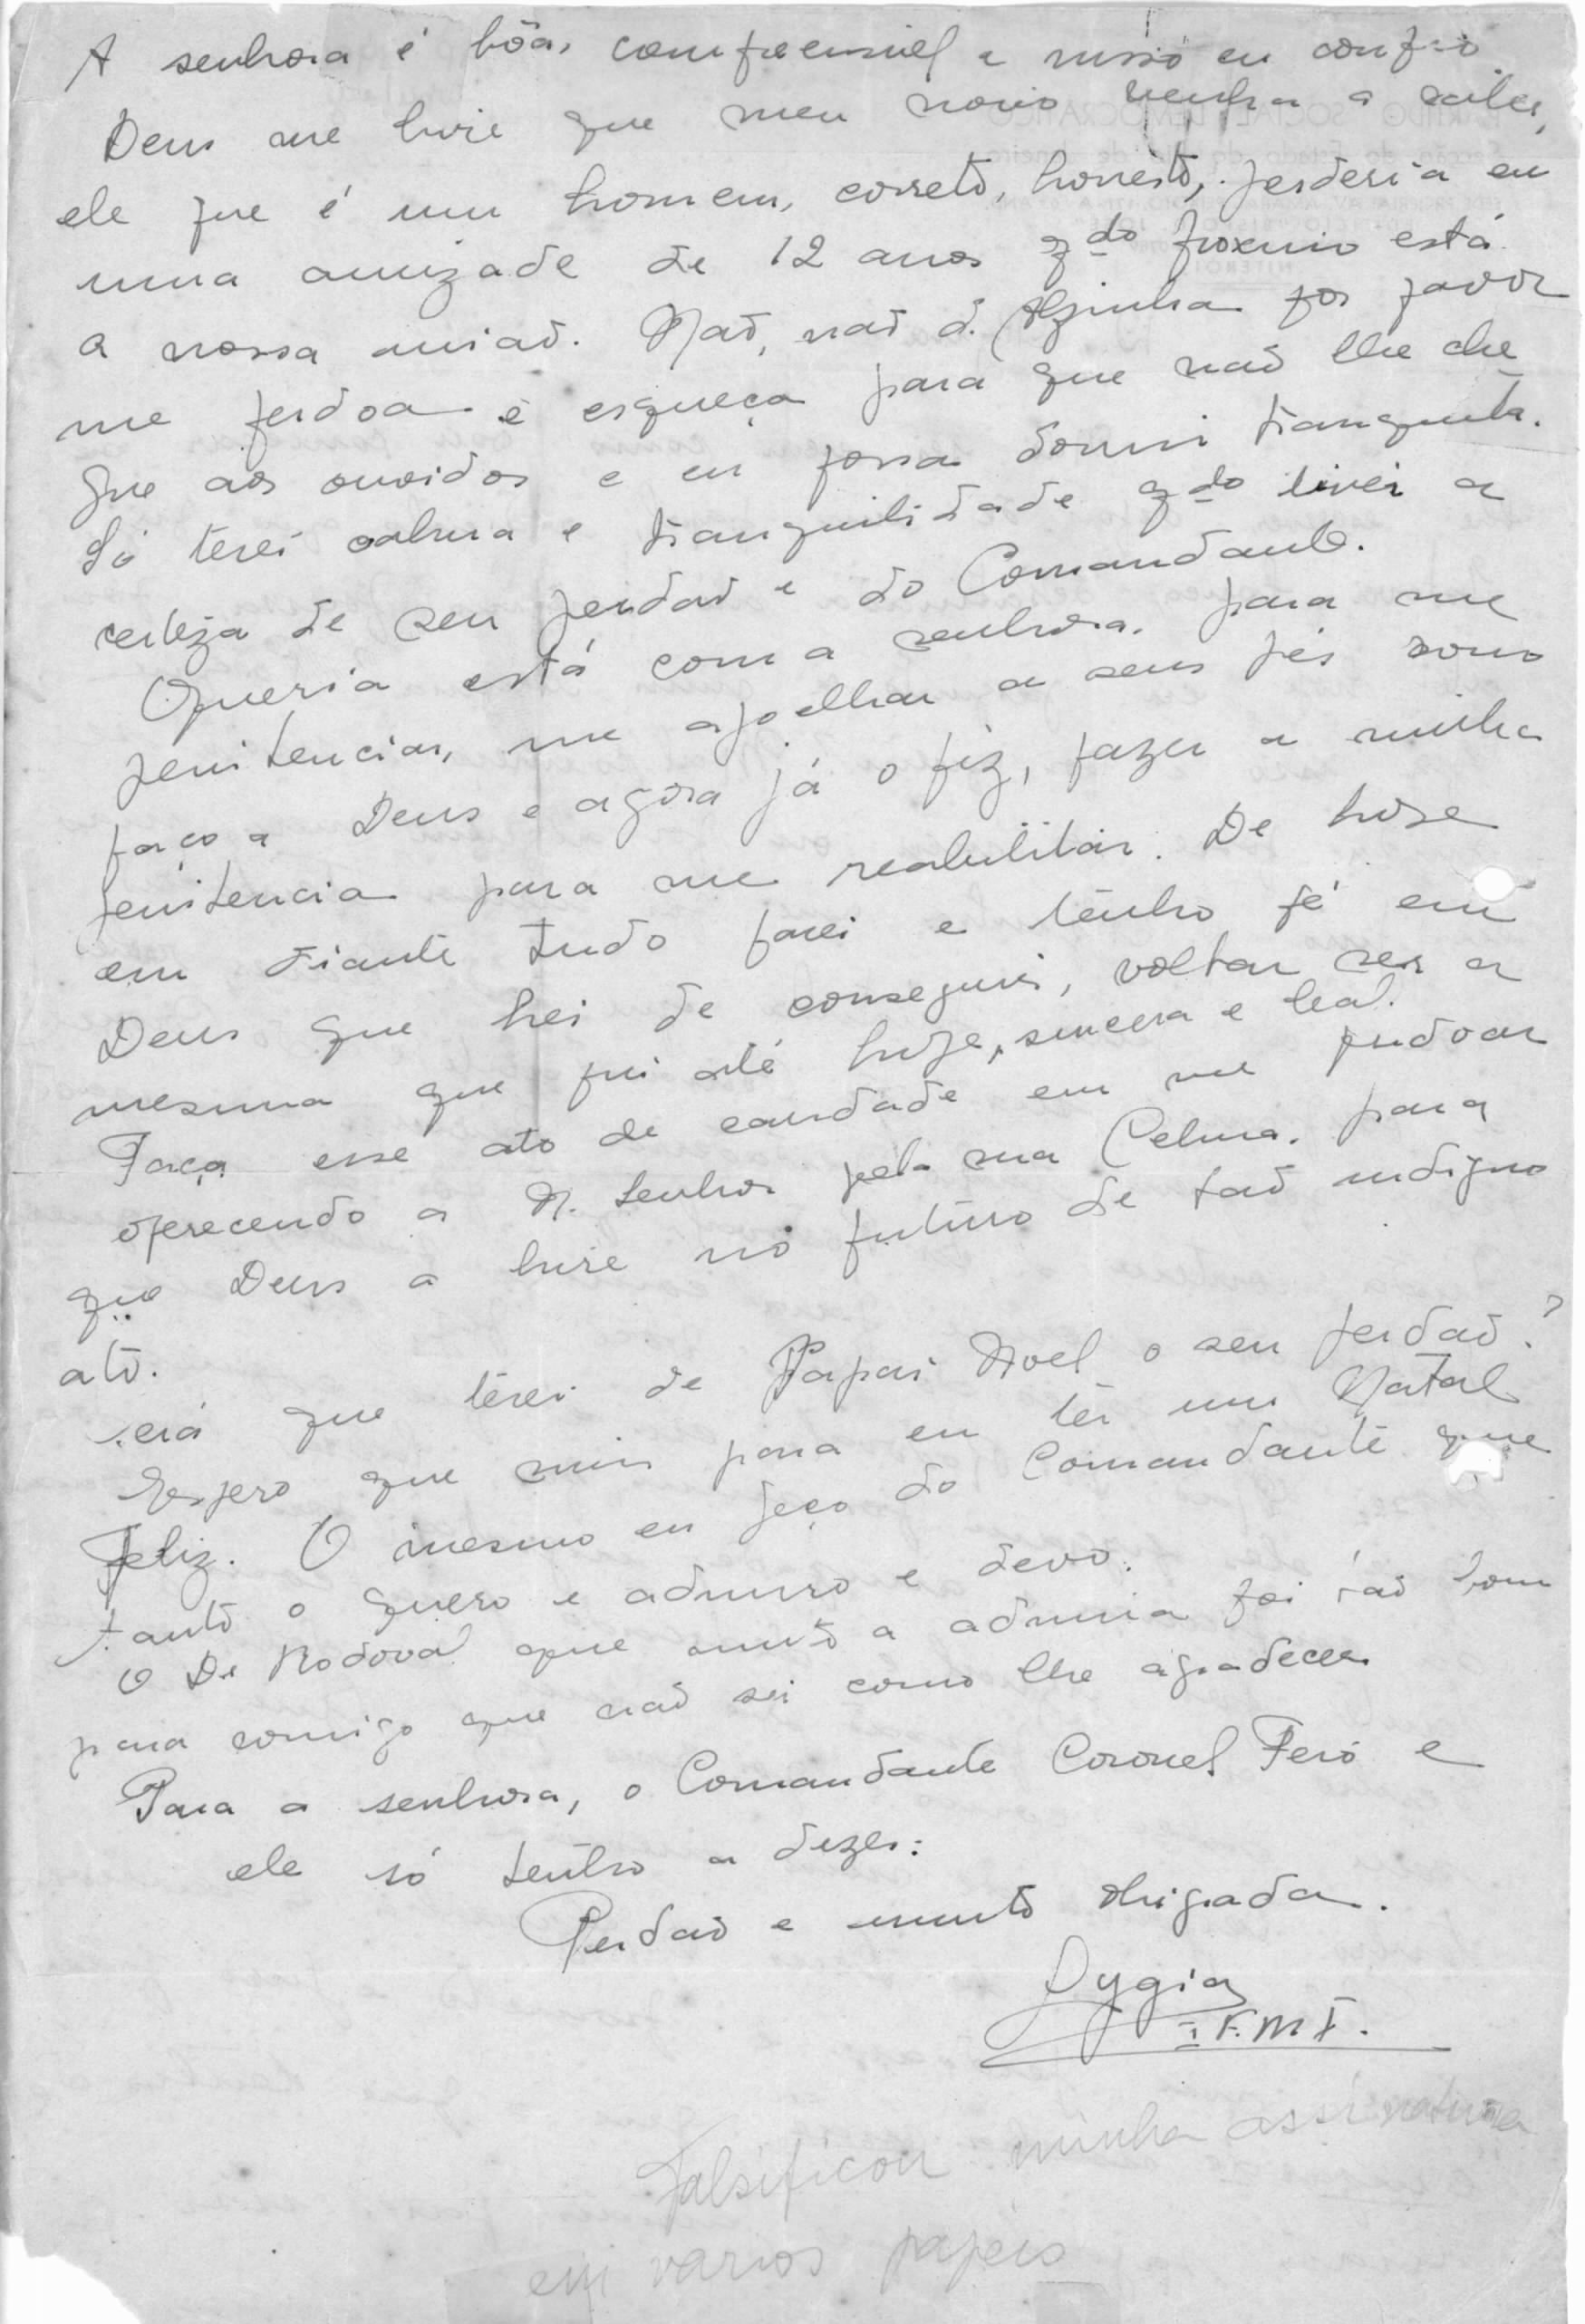 A senhora é bôa, compreensivel e nisso eu confio
Deus me livre que meu noivo venha a saber,
ele que é um homem, correto, honesto, perderia eu
uma amizade de 12 anos qdo proximo está
a nossa uniaõ. Naõ, naõ d. Alzinha por favor
me perdoa e esqueça para que naõ lhe che
gue aos ouvidos e eu possa dormi tranquila.
Só terei calma e tranquilidade qdo tiver a
certeza de seu perdaõ e do Comandante.
Queria está com a senhora. para me
penitenciar, me ajoelhar a seus pés como
faço a Deus e agora já o fiz, fazer a minha
penitencia para me reabilitar. De hoje
em diante tudo farei e tenho fé em
Deus que hei de conseguir, voltar ser a
mesma que fui até hoje, sincera e leal.
Faça esse ato de caridade em me perdoar
oferecendo a N. Senhor pela sua Celma. para
que Deus a livre no futuro de taõ indigno
ato.
será que terei de Papai Noel o seu perdaõ?
Espero que sim para eu ter um Natal
Feliz. O mesmo eu peço do Comandante que
tanto o quero e admiro e devo.
O Dr Rodoval que muito a admira foi taõ bom
para comigo que naõ sei como lhe agradecer
Para a senhora, o Comandante Coronel Feio e
ele só tenho a dizer:
Perdaõ e muito obrigada.
Lygia
F.M.I.
Falsificou minha assinatura
em varios papeis